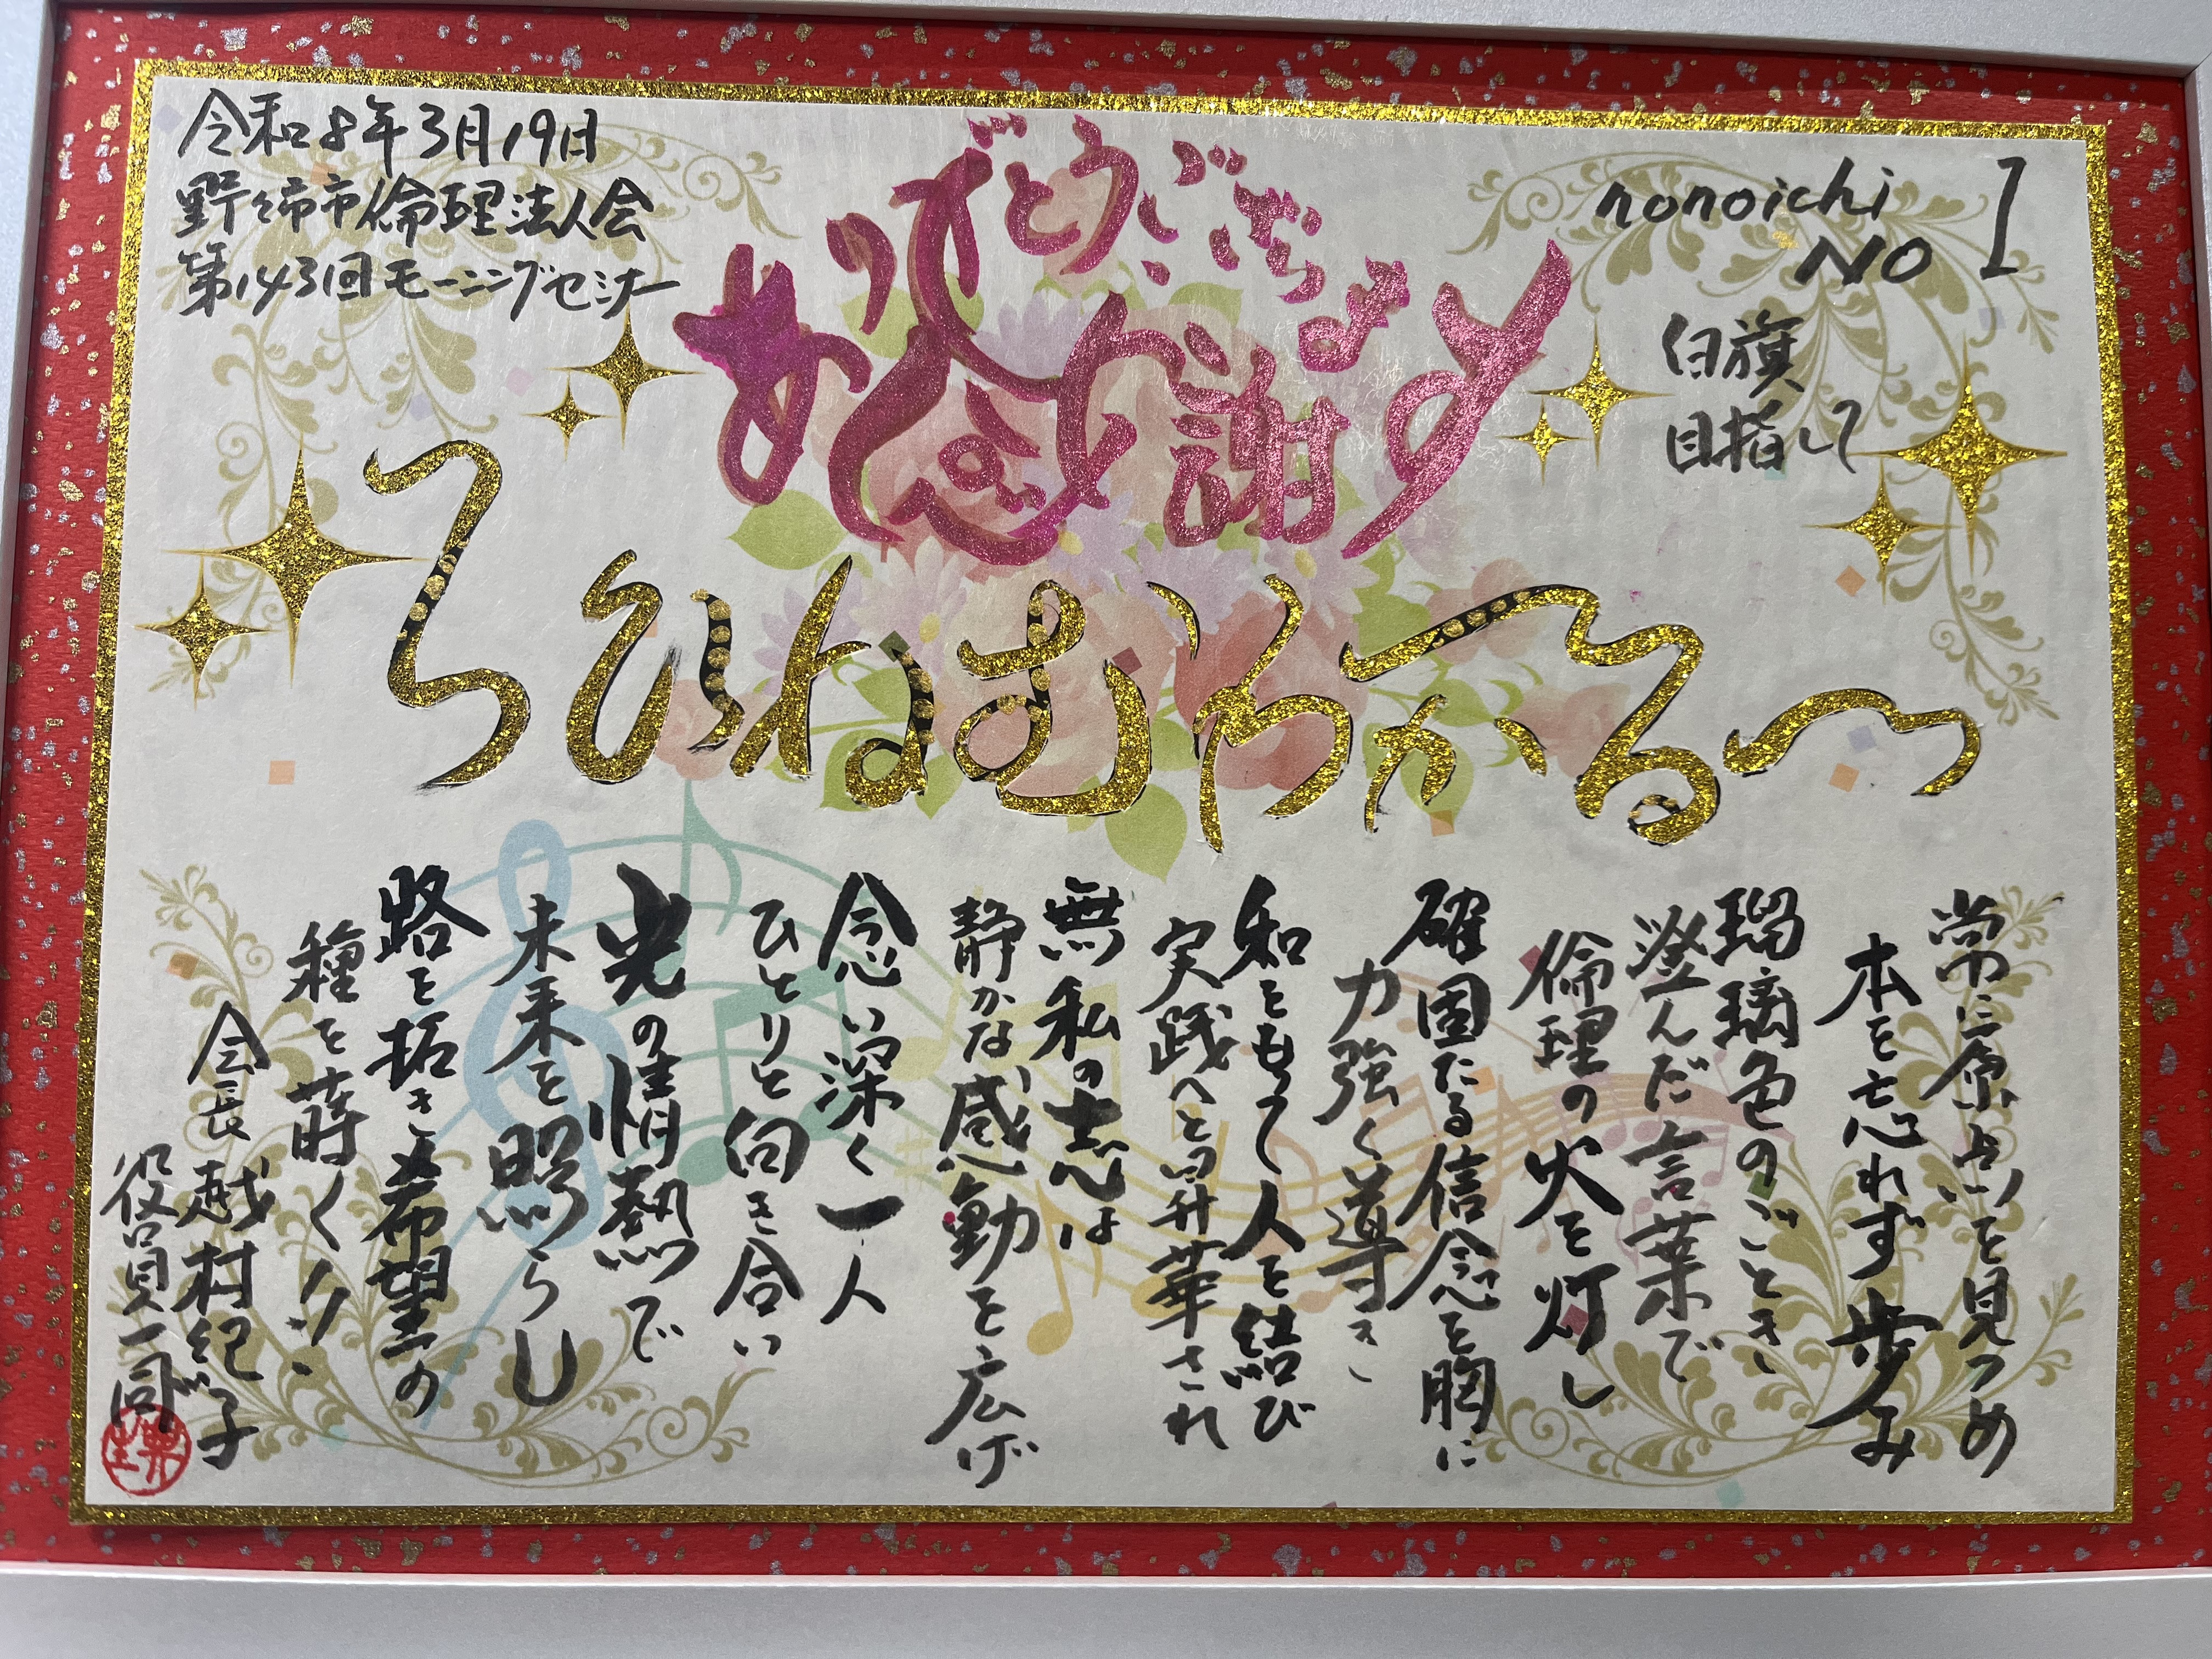 令和8年3月19日
野々市市倫理法人会
第143回モーニングセミナー
ありがとうございます
感謝
nonoichi
NO 1
白旗
目指して
ろひねむわかるつ
常に原点を見つめ
本を忘れず歩み
瑠璃色のごとき
澄んだ言葉で
倫理の火を灯し
確固たる信念を胸に
力強く導き
和をもって人を結び
実践へと昇華され
無私の志は
静かな感動を広げ
念い深く一人
ひとりと向き合い
光の情熱で
未来を照らし
路を拓き希望の
種を蒔く
会長 越村紀子
役員一同